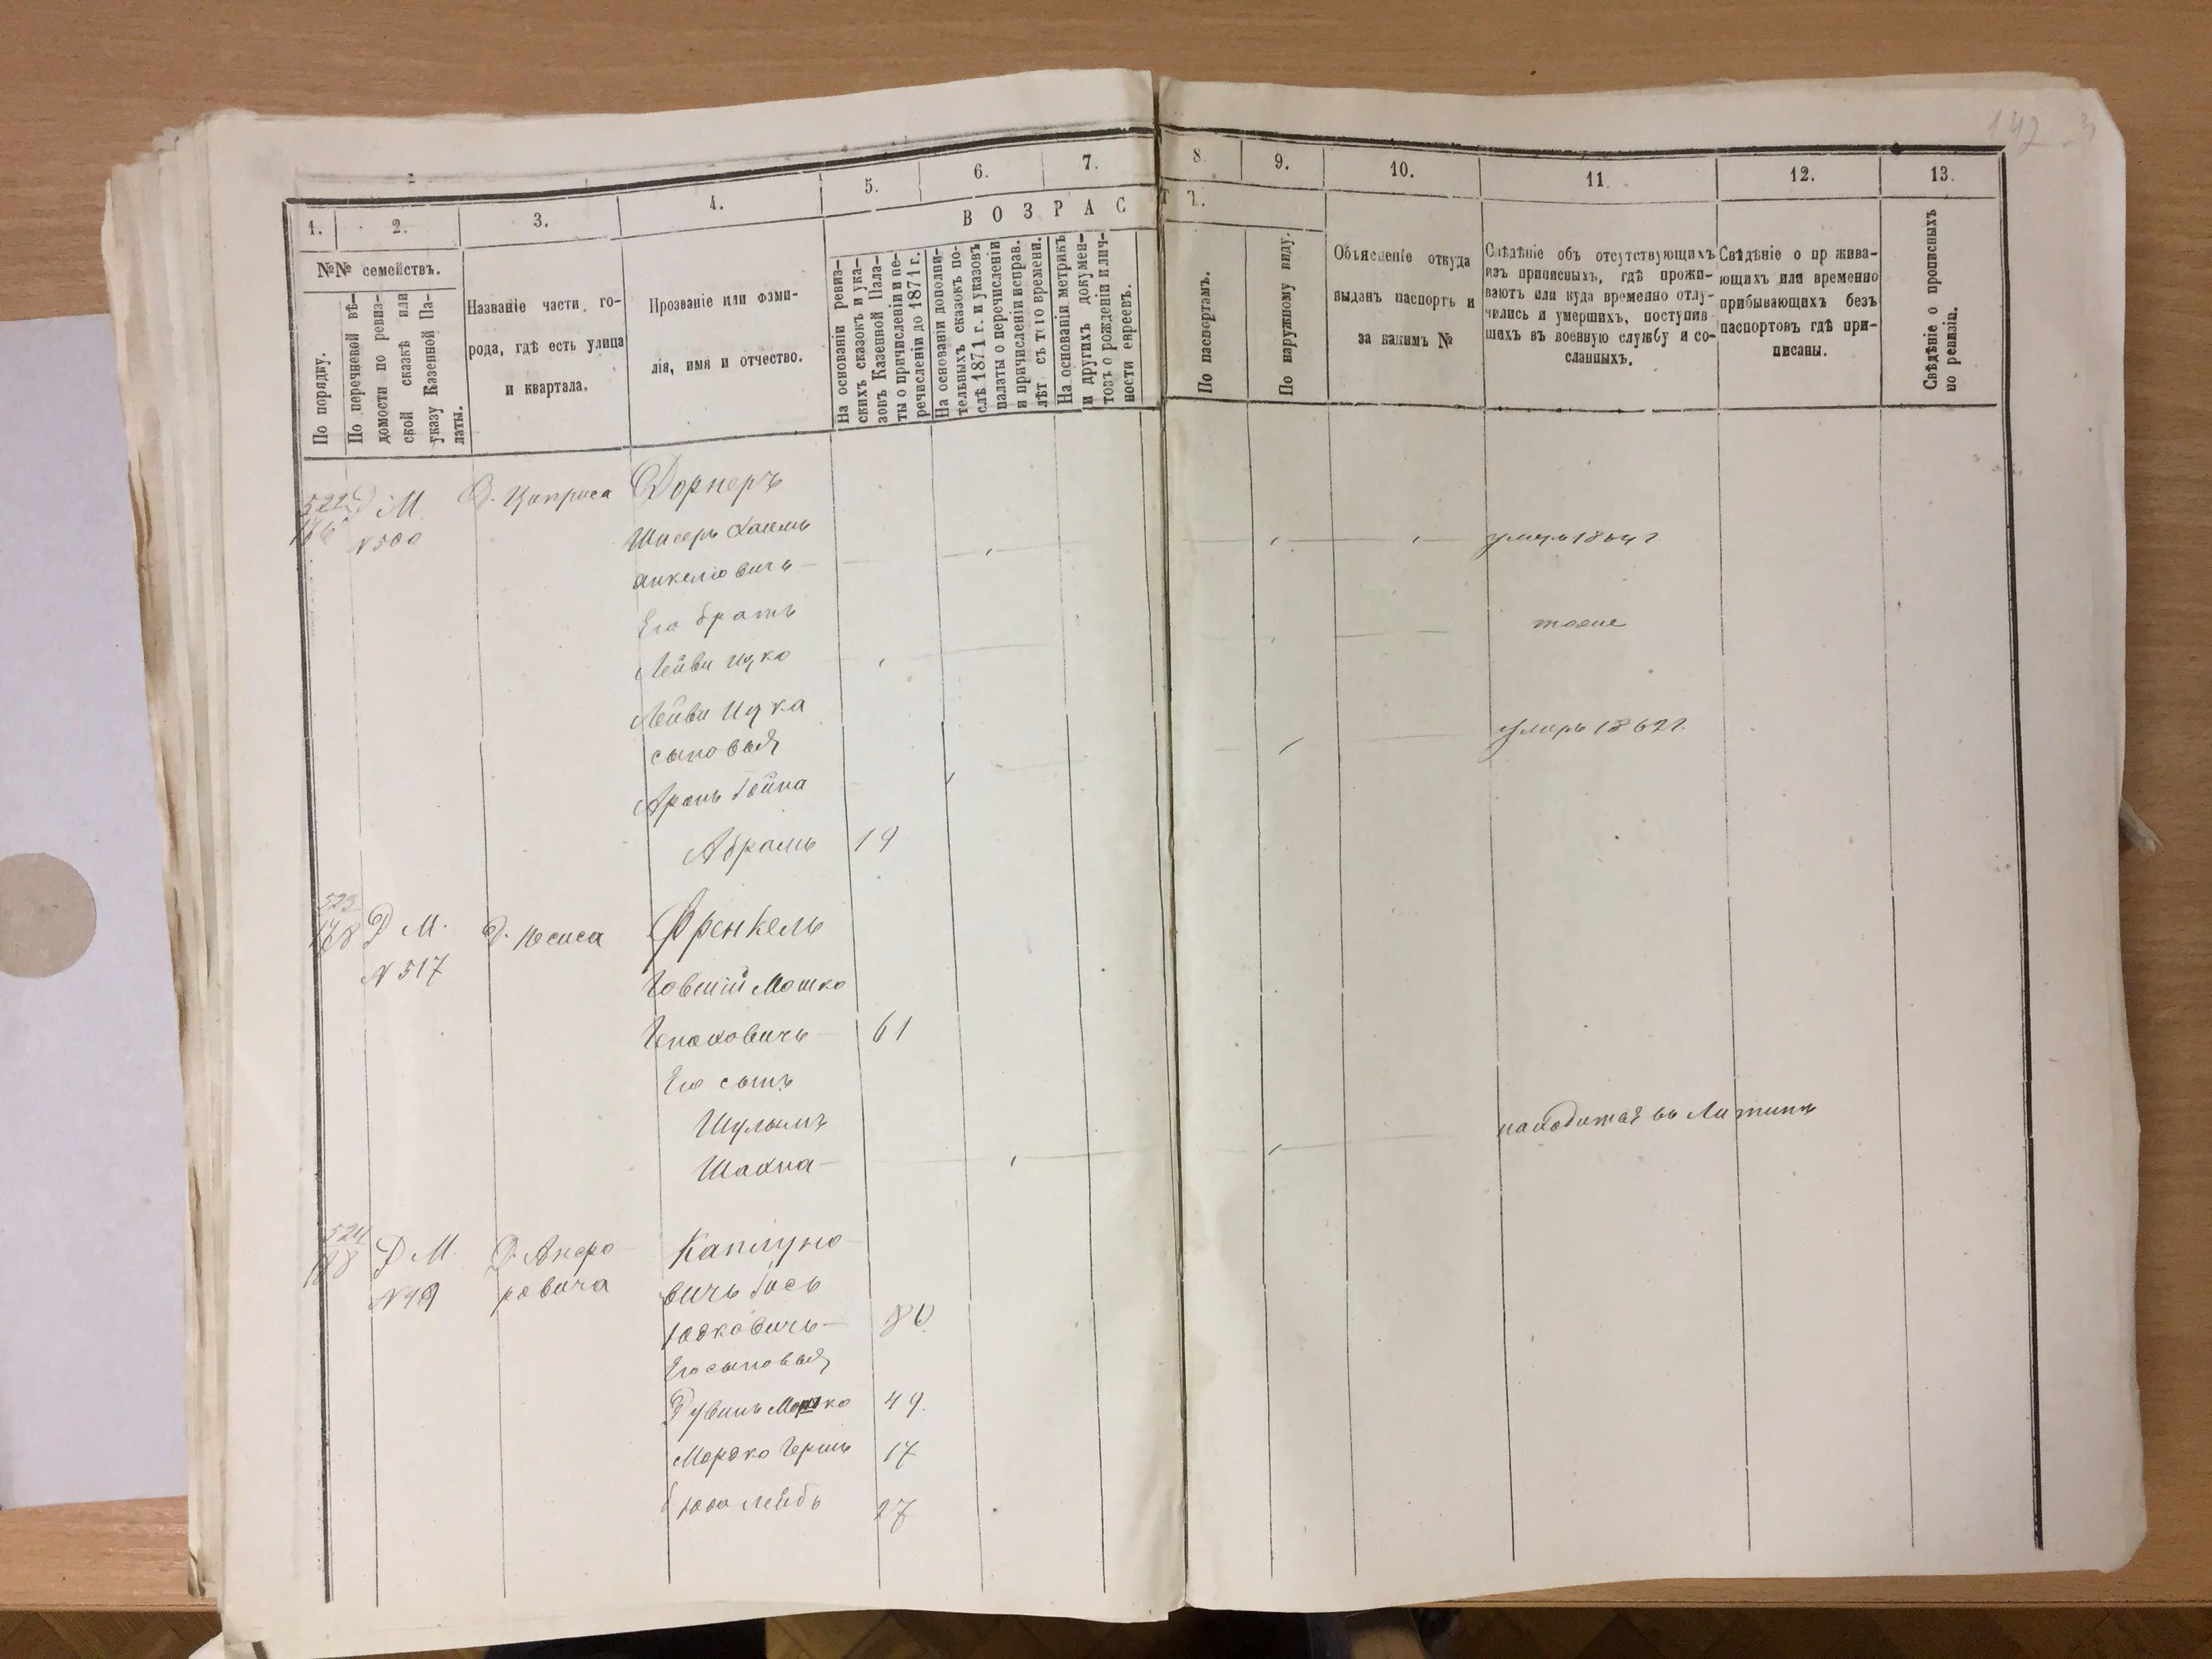 142
1.
2.
3.
4.
5.
6.
7.
8.
9.
10.
11.
12.
13.
ВОЗРАСТЪ.
№№ семействъ.
По порядку.
По перечневой вѣ-
домости по ревиз-
ской сказкѣ или
указу Казенной Па-
латы.
Названіе части го-
рода, гдѣ есть улица
и квартала.
Прозваніе или фами-
лія, имя и отчество.
На основаніи ревиз-
скихъ сказокъ и ука-
зовъ Казенной Пала-
ты о причисленіи и пе-
речисленіи до 1871 г.
На основаніи дополни-
тельныхъ сказокъ по-
слѣ 1871 г. и указовъ
палаты о перечисленіи
и причисленіи исправ.
лѣт съ того времени.
На основаніи метрикъ
и другихъ докумен-
товъ о рожденіи и лич-
ности евреевъ.
По паспортамъ.
По наружному виду.
Объясненіе откуда
выданъ паспортъ и
за какимъ №
Свѣдѣніе объ отсутствующихъ
изъ приписныхъ, гдѣ прожи-
ваютъ или куда временно отлу-
чились и умершихъ, поступив
шихъ въ военную службу и со-
сланныхъ.
Свѣдѣніе о пр жива-
ющихъ или временно
прибывающихъ безъ
паспортовъ гдѣ при-
писаны.
Свѣдѣніе о прописныхъ
по ревизіи.
522 Д М. Д. Циприса Дорнеръ
176 N 500
Шисеръ Хаимъ умеръ 1864 г
Янкелiовичъ
Его братъ тоже
Лейви Ицко
Лейви Ицка умеръ 1862 г.
сыновья
Аронъ Гойна
Абрамъ 19
523 Д М. Д. Френкель
178 N 517
Говшій Мошко
61
Его сынъ
Шулимъ находится въ Литинѣ
Шахна
524 Д М. Каплуно
N 49 ровича вичъ Іось
Юдковичъ 80
Его сыновья
Дувинъ Мошко 49.
Мордко Гершъ 17
Лейбъ 27